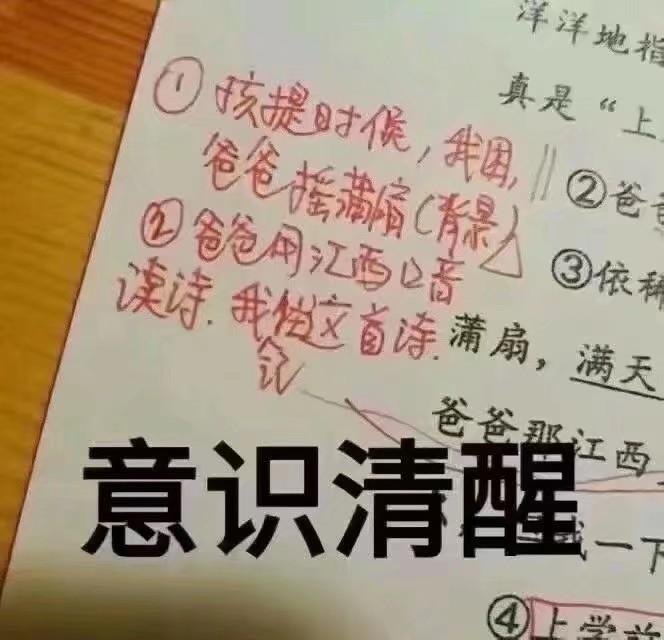 洋洋地指
真是“上
①孩提时候，我困，
爸爸摇蒲扇(背景)
②爸爸用江西口音
读诗.我 这首诗.
念
②爸爸
③依稀
蒲扇，满天
爸爸那江西
我一下
④上学前
意识清醒